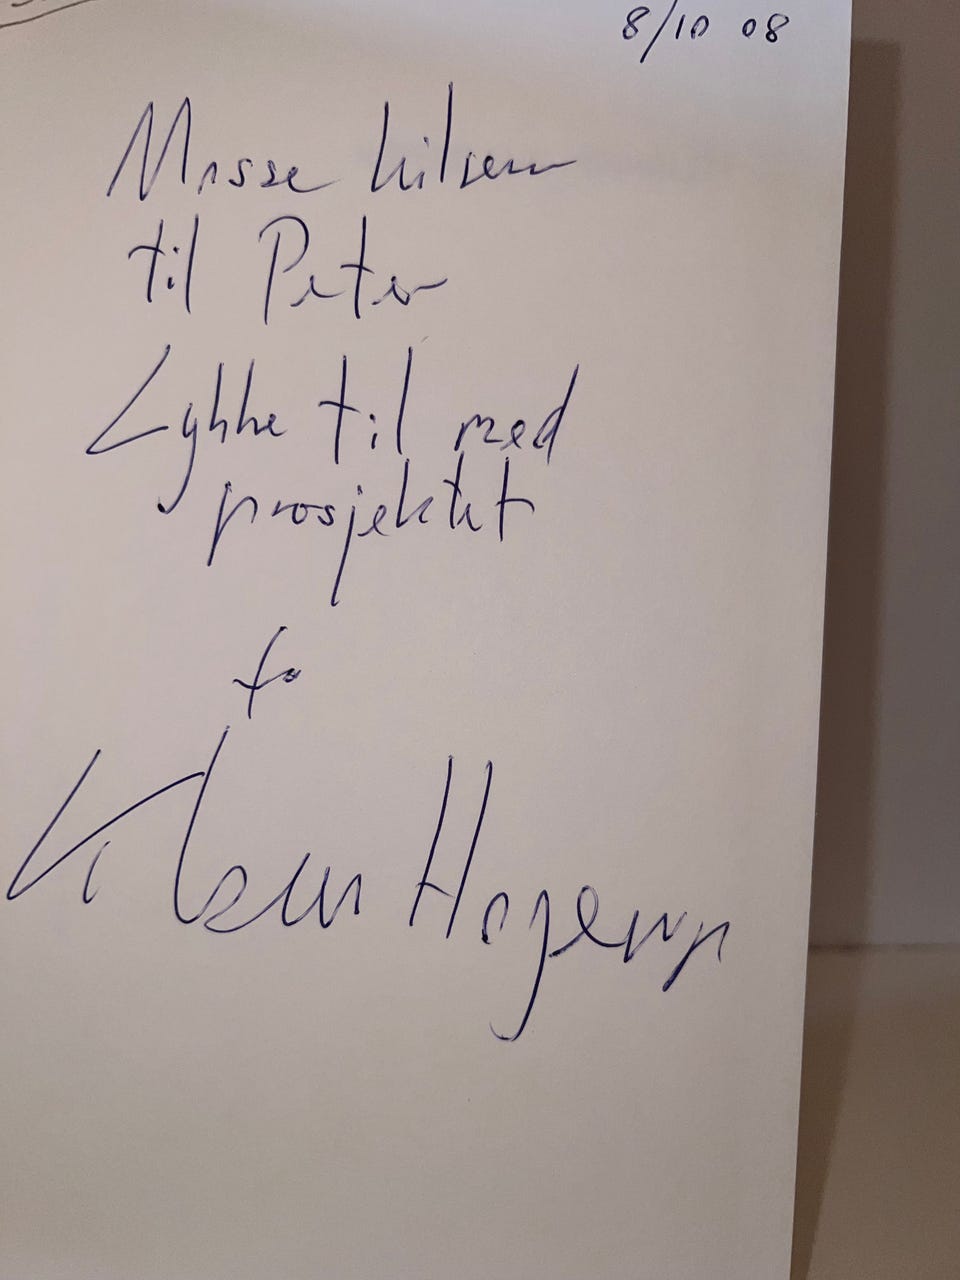 8/10 08
Masse hilsen
til Peter
Lykke til med
prosjektet
fra
Klaus Hagerup